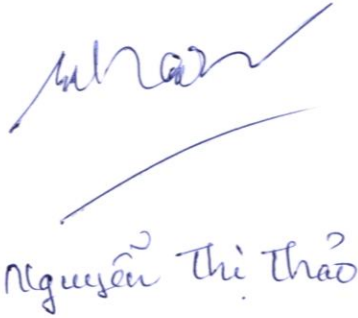 Nguyễn Thị Thảo